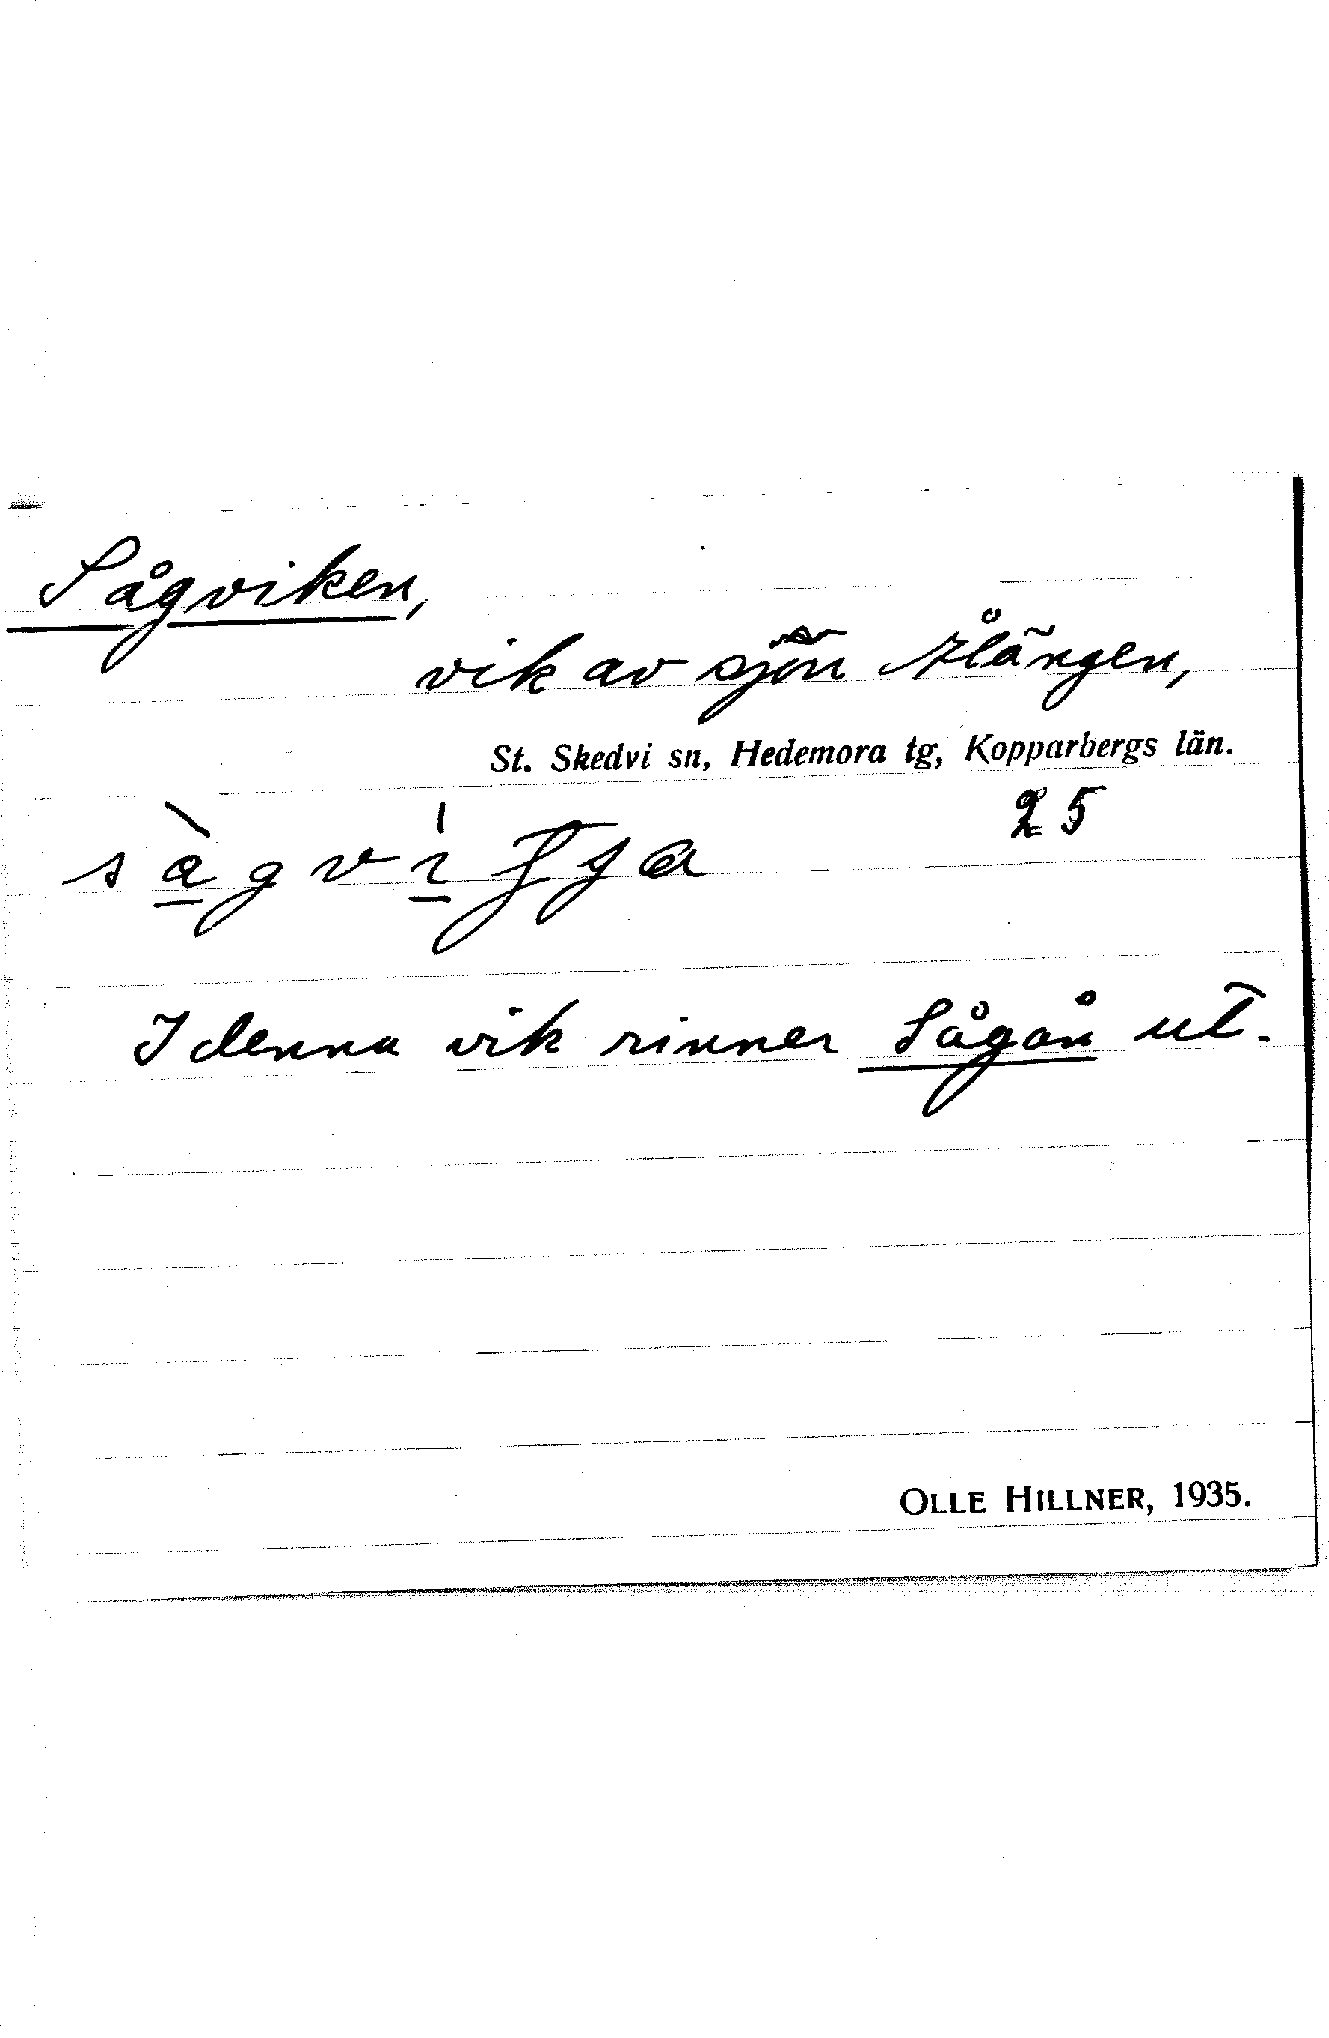 Sågviken,
vik av sjön Ålången,
St. Skedvi sn, Hedemora tg, Kopparbergs län.
25
I denna vik rinner Sågån ut.
OLLE HILLNER, 1935.